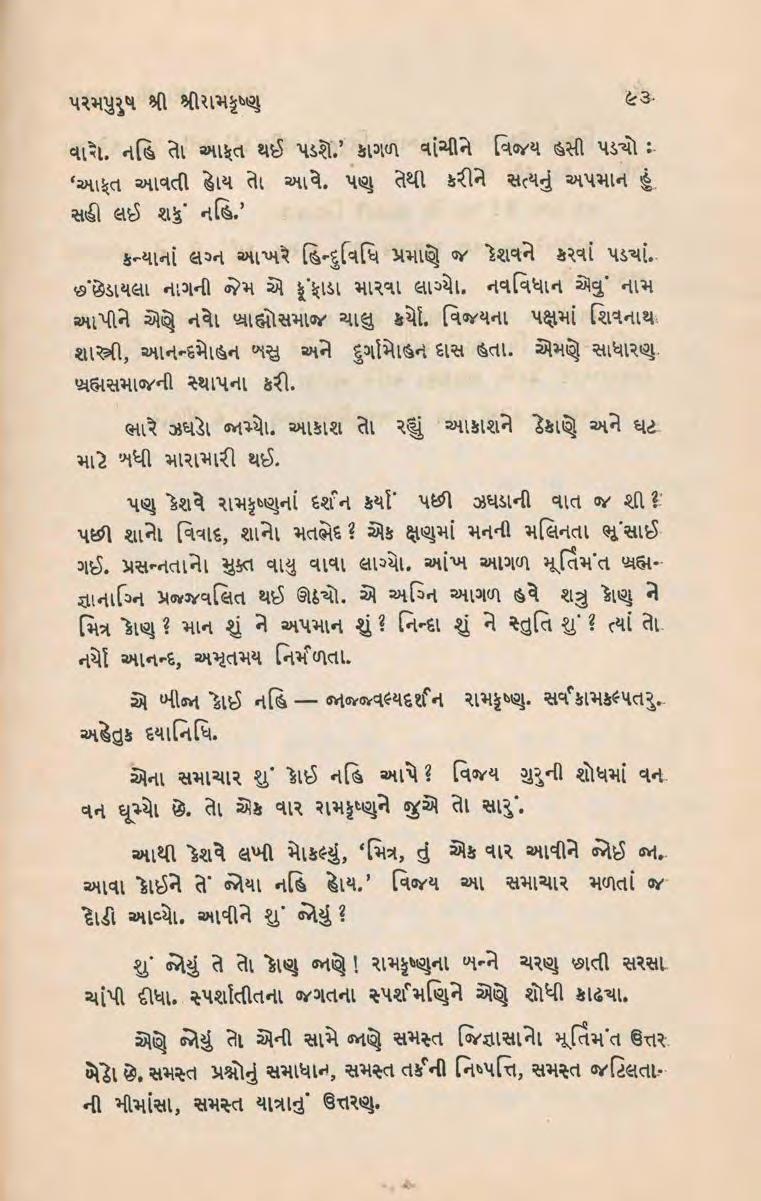 પરમપુરુષ શ્રી શ્રીરામકૃષ્ણ ૯૩
વારો. નહિ તો આફત થઈ પડશે.’ કાગળ વાંચીને વિજય હસી પડ્યો :
‘આફત આવતી હોય તો આવે. પણ તેથી કરીને સત્યનું અપમાન હું
સહી લઈ શકું નહિ.’
કન્યાનાં લગ્ન આખરે હિન્દુવિધિ પ્રમાણે જ કેશવને કરવાં પડ્યાં.
છંછેડાયલા નાગની જેમ એ ફૂંફાડા મારવા લાગ્યો. નવવિધાન એવું નામ
આપીને એણે નવો બ્રાહ્મોસમાજ ચાલુ કર્યો. વિજયના પક્ષમાં શિવનાથ
શાસ્ત્રી, આનન્દમોહન બસુ અને દુર્ગામોહન દાસ હતા. એમણે સાધારણ
બ્રહ્મસમાજની સ્થાપના કરી.
ભારે ઝઘડો જામ્યો. આકાશ તો રહ્યું આકાશને ઠેકાણે અને ઘટ
માટે બધી મારામારી થઈ.
પણ કેશવે રામકૃષ્ણનાં દર્શન કર્યાં પછી ઝઘડાની વાત જ શી ?
પછી શાનો વિવાદ, શાનો મતભેદ ? એક ક્ષણમાં મનની મલિનતા ભૂંસાઈ
ગઈ. પ્રસન્નતાનો મુક્ત વાયુ વાવા લાગ્યો. આંખ આગળ મૂર્તિમંત બ્રહ્મ-
જ્ઞાનાગ્નિ પ્રજ્જ્વલિત થઈ ઊઠ્યો. એ અગ્નિ આગળ હવે શત્રુ કોણ ને
મિત્ર કોણ ? માન શું ને અપમાન શું ? નિન્દા શું ને સ્તુતિ શું ? ત્યાં તો
નર્યો આનન્દ, અમૃતમય નિર્મળતા.
એ બીજા કોઈ નહિ — જાજ્જવલ્યદર્શન રામકૃષ્ણ. સર્વકામકલ્પતરુ.
અહેતુક દયાનિધિ.
એના સમાચાર શું કોઈ નહિ આપે ? વિજય ગુરુની શોધમાં વન
વન ઘૂમ્યો છે. તો એક વાર રામકૃષ્ણને જુએ તો સારું.
આથી કેશવે લખી મોકલ્યું, ‘મિત્ર, તું એક વાર આવીને જોઈ જા.
આવા કોઈને તેં જોયા નહિ હોય.’ વિજય આ સમાચાર મળતાં જ
દોડી આવ્યો. આવીને શું જોયું ?
શું જોયું તે તો કોણ જાણે ! રામકૃષ્ણના બન્ને ચરણ છાતી સરસા
ચાંપી દીધા. સ્પર્શાતીતના જગતના સ્પર્શમણિને એણે શોધી કાઢ્યા.
એણે જોયું તો એની સામે જાણે સમસ્ત જિજ્ઞાસાનો મૂર્તિમંત ઉત્તર
બેઠો છે. સમસ્ત પ્રશ્નોનું સમાધાન, સમસ્ત તર્કની નિષ્પત્તિ, સમસ્ત જટિલતા-
ની મીમાંસા, સમસ્ત યાત્રાનું ઉત્તરણ.